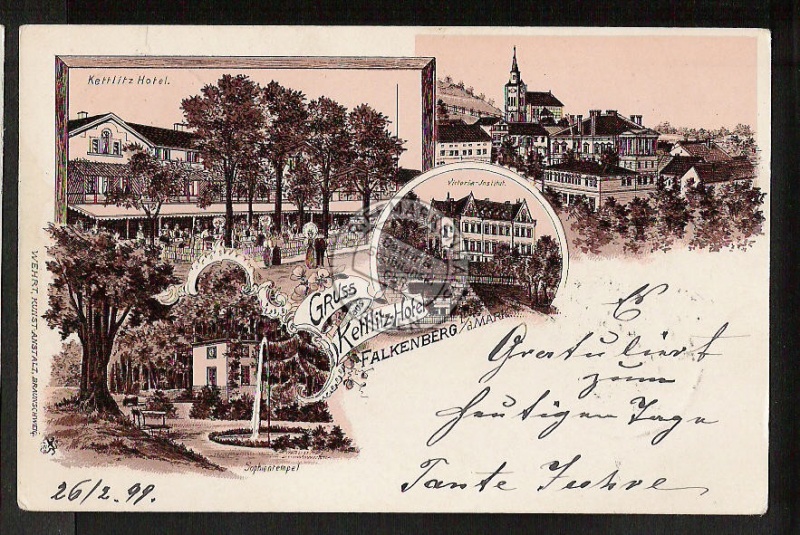 Kettlitz Hotel.
Victoria-Institut.
Gruss
Kettlitz-Hotel
FALKENBERG i/d. MARK
Sophientempel
WEHRT, KUNST-ANSTALT, BRAUNSCHWEIG.
Es
Gratuliert
zum
heutigen Tage
Tante
26/2. 99.